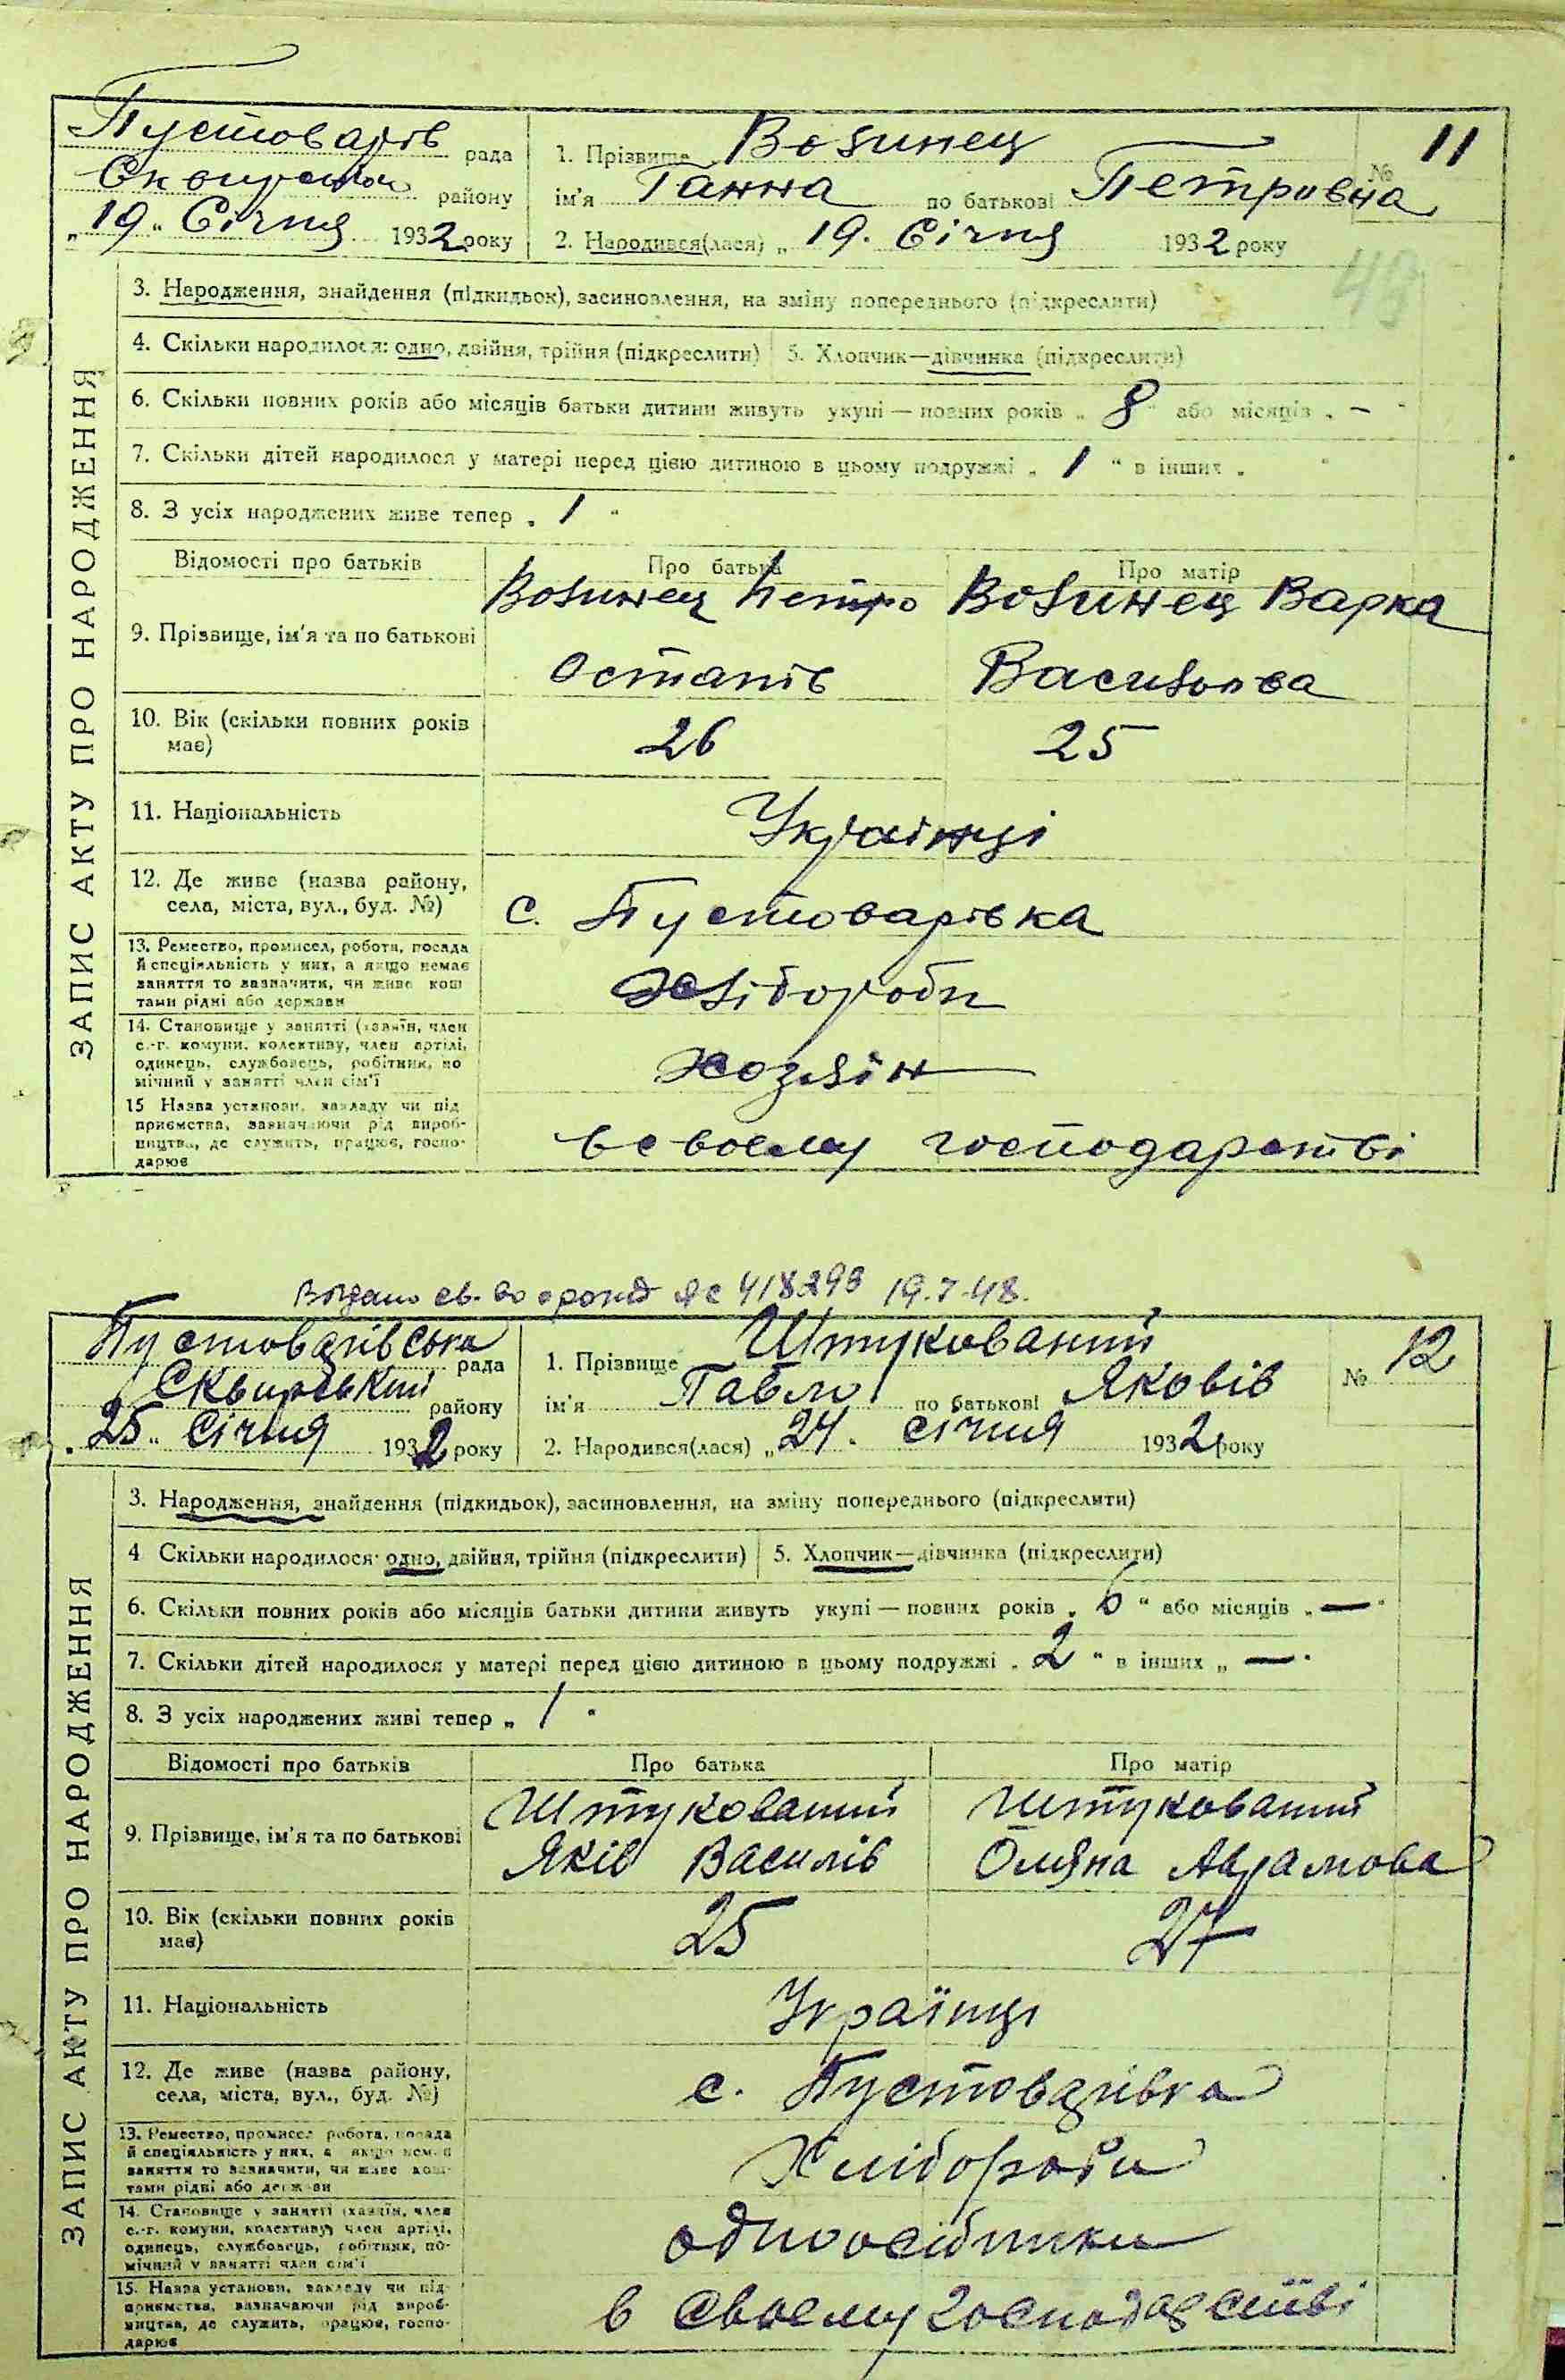 Пустоварів рада
Сквирськ району
„19" Січня 1932 року
1. Прізвище Волинец № 11
ім'я Ганна по батькові Петровна
2. Народився(лася) „19. Січня 1932 року
48
ЗАПИС АКТУ ПРО НАРОДЖЕННЯ
3. Народження, знайдення (підкидьок), засиновлення, на зміну попереднього (підкреслити)
4. Скільки народилося: одно, двійня, трійня (підкреслити) 5. Хлопчик—дівчинка (підкреслити)
6. Скільки повних років або місяців батьки дитини живуть укупі — повних років „ 8 " або місяців „ – "
7. Скільки дітей народилося у матері перед цією дитиною в цьому подружжі „ 1 " в інших „ "
8. З усіх народжених живе тепер „ 1 "
Відомості про батьків Про батька Про матір
9. Прізвище, ім'я та по батькові Волинец Петро Волинец Варка
Остапів Василовва
10. Вік (скільки повних років має) 26 25
11. Національність Українці
12. Де живе (назва району, села, міста, вул., буд. №) с. Пустоварівка
13. Ремество, промисел, робота, посада
й спеціяльність у них, а якщо немає
заняття то зазначити, чи живе кош
тами рідні або держави Хлібороби
14. Становище у занятті (хазяїн, член
с.-г. комуни, колективу, член артілі,
одинець, службовець, робітник, по
мічний у занятті член сім'ї Хозяін
15 Назва установи, закладу чи під
приємства, зазначаючи рід вироб-
ництва, де служить, працює, госпо-
дарює в своему господарстві
Видано св. во о рожд ЯС 418293 19.7.48.
Пустоварівська рада
Сквирський району
„25" Січня 1932 року
1. Прізвище Штукований № 12
ім'я Павло по батькові Яковів
2. Народився(лася) „24. січня 1932 року
ЗАПИС АКТУ ПРО НАРОДЖЕННЯ
3. Народження, знайдення (підкидьок), засиновлення, на зміну попереднього (підкреслити)
4 Скільки народилося: одно, двійня, трійня (підкреслити) 5. Хлопчик—дівчинка (підкреслити)
6. Скільки повних років або місяців батьки дитини живуть укупі — повних років „ 6 " або місяців „ — "
7. Скільки дітей народилося у матері перед цією дитиною в цьому подружжі „ 2 " в інших „ — "
8. З усіх народжених живі тепер „ 1 "
Відомості про батьків Про батька Про матір
9. Прізвище, ім'я та по батькові Штукований Штукований
Яків Василів Оляна Аврамова
10. Вік (скільки повних років має) 25 27
11. Національність Українці
12. Де живе (назва району, села, міста, вул., буд. №) с. Пустоварівка
13. Ремество, промисел робота, посада
й спеціяльність у них, а якщо немає
заняття то зазначити, чи живе кош-
тами рідні або держави Хлібороби
14. Становище у занятті (хазяїн, член
с.-г. комуни, колективу, член артілі,
одинець, службовець, робітник, по-
мічний у занятті член сім'ї одноосібники
15. Назва установи, закладу чи під-
приємства, зазначаючи рід вироб-
ництва, де служить, працює, госпо-
дарює в своему господарстві